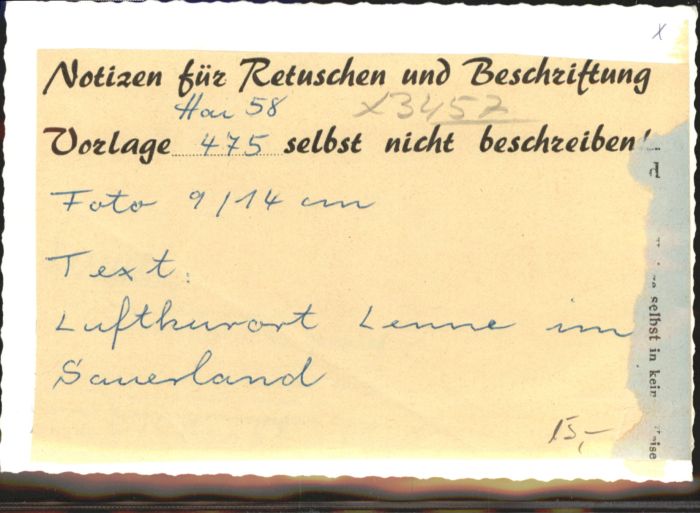 x
Notizen für Retuschen und Beschriftung
Hai 58
x3457
Vorlage 475 selbst nicht beschreiben!
Foto 9/14 cm
Text:
Luftkurort Lenne im
Sauerland
15,-
selbst in kein